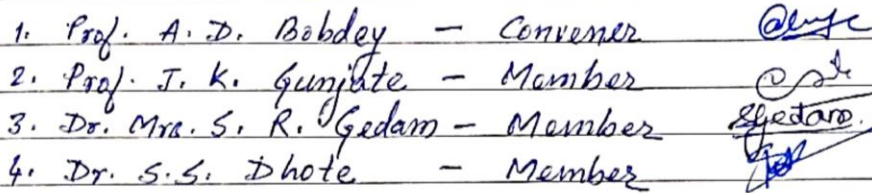 1. Prof. A. D. Bobdey - Convener
2. Prof. J. K. Gunjate - Member
3. Dr. Mrs. S. R. Gedam - Member SGedam.
4. Dr. S.S. Dhote - Member